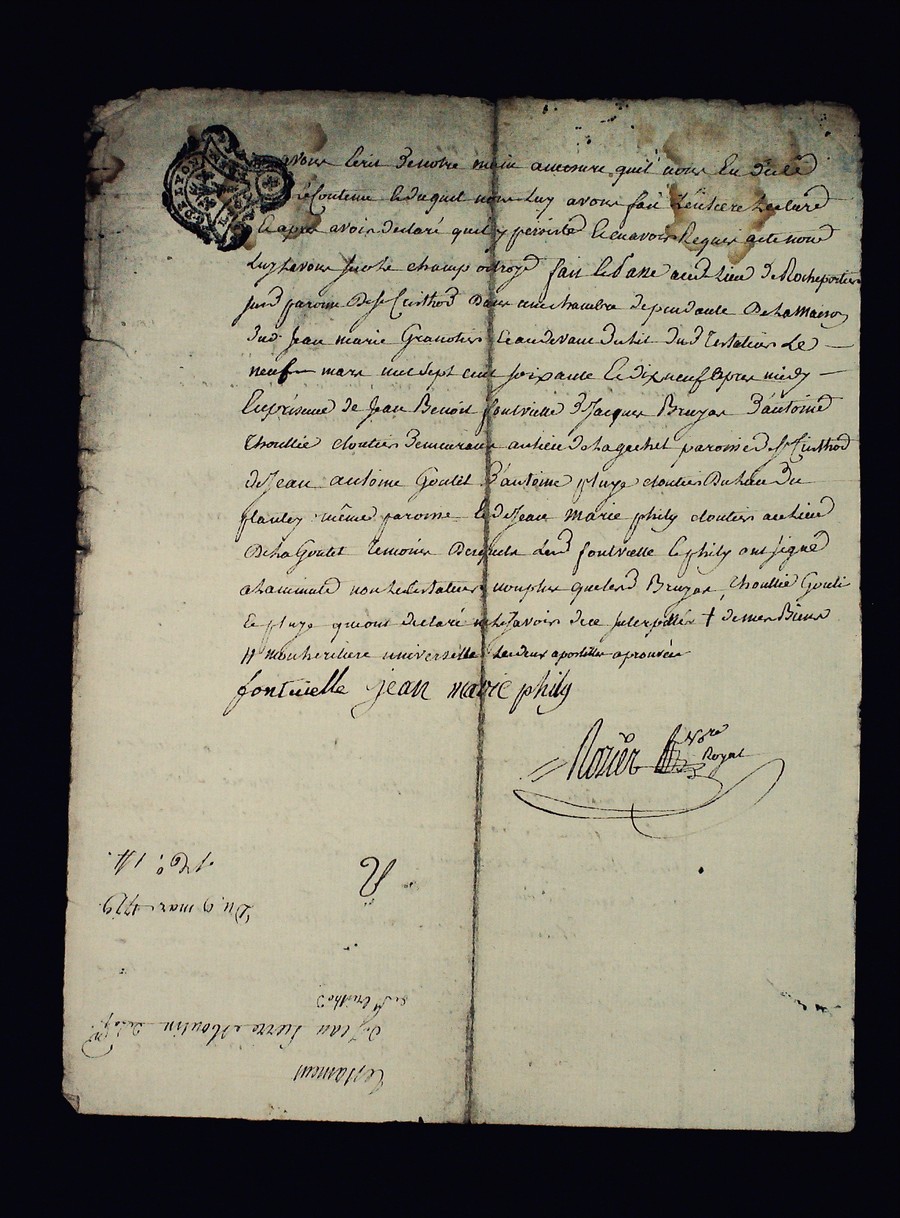 avons Ecrit de notre main amesure quil nous En dicté
Contenu Leduquel nous Luy avons fait Lentiere Lecture
Et apres avoir declaré quil y persiste Et en avoir Requis acte nous
Luy Lavons sur le champ octroyé fait Et passé audt Lieu de Rocheportier
susd paroisse De st Cirthod Dans une chambre dependante De La Maison
dud Jean marie Granotier Et au devant du lit dud Testateur Le
neuf mars mil sept cent soixante Et dix neuf apres midy
En presence de Jean Benoit fontvielle de Jacques Bruyas d'antoine
Thoullie cloutier demeurant au lieu de la gachet paroisse de st Cirthod
de Jean antoine Goutet d'antoine pluye cloutier du lieu du
plantey même paroisse Et de Jean Marie phily cloutier au Lieu
De La Goutet Temoins Desquels Lesd fontvielle Et phily ont signé
a la minute non Le Testateur non plus que Lesd Bruyas, Thoullie Goute
Et pluye qui ont declaré ne Scavoir de ce Interpellés † de mes Biens
# mon heritiere universelle Les deux apostilles aprouvées
fontvielle jean marie phily
Rozier Nore
Royal
Testament
de Jean Pierre Moulin
de st Cirthod
Du 9 mars 1779.